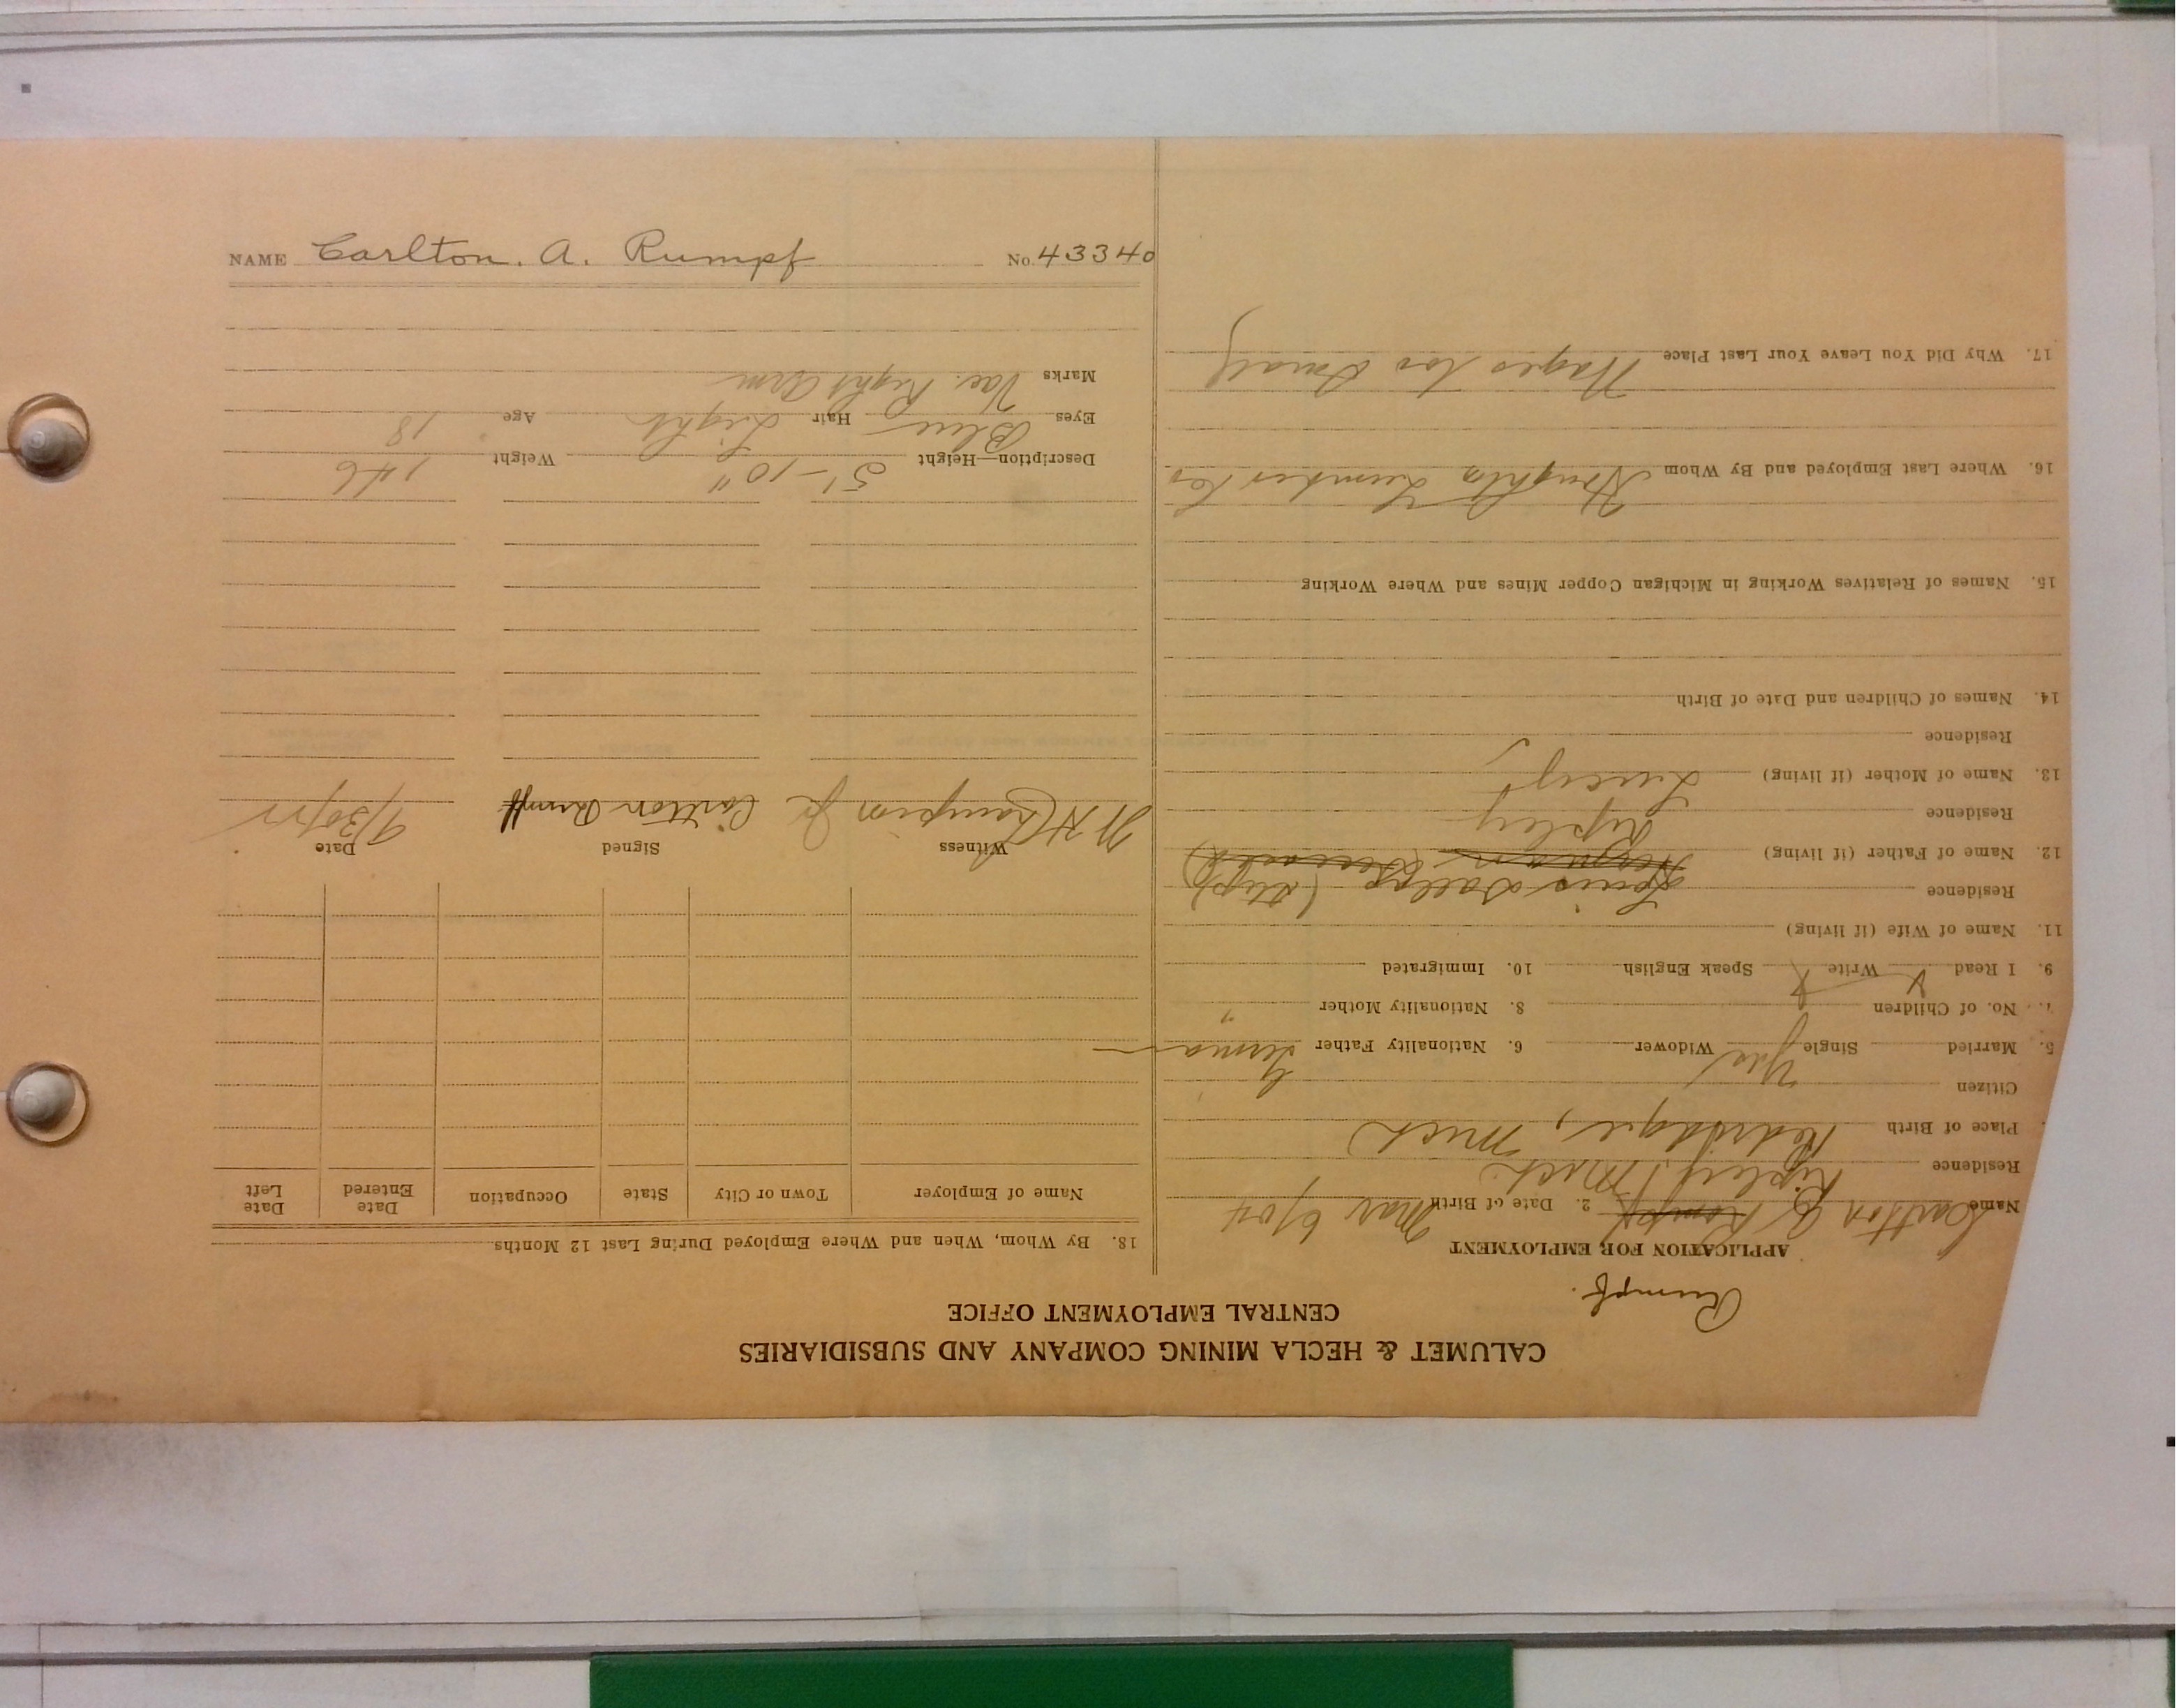 CALUMET & HECLA MINING COMPANY AND SUBSIDIARIES
CENTRAL EMPLOYMENT OFFICE
Rumpf.
APPLICATION FOR EMPLOYMENT
Name Carlton A Rompf 2. Date of Birth Mar 6/04
Residence Ripley Mich
Place of Birth Kearsarge, Mich
Citizen
5. Married Single Yes Widower 6. Nationality Father German
7. No. of Children 8. Nationality Mother "
9. I Read X Write X Speak English 10. Immigrated
11. Name of Wife (if living)
Residence
Louis (Step)
12. Name of Father (if living) Herman
Residence Ripley
13. Name of Mother (if living) Lucy
Residence
14. Names of Children and Date of Birth
15. Names of Relatives Working in Michigan Copper Mines and Where Working
16. Where Last Employed and By Whom Lumber Co
17. Why Did You Leave Your Last Place Wages too Small
18. By Whom, When and Where Employed During Last 12 Months
Name of Employer Town or City State Occupation Date Entered Date Left
Witness Signed Date
W H Champion Jr Carlton Rumpf 9/30/22
Description—Height 5'-10" Weight 146
Eyes Blue Hair Light Age 18
Marks Vac. Right Arm
NAME Carlton. A. Rumpf No. 43340